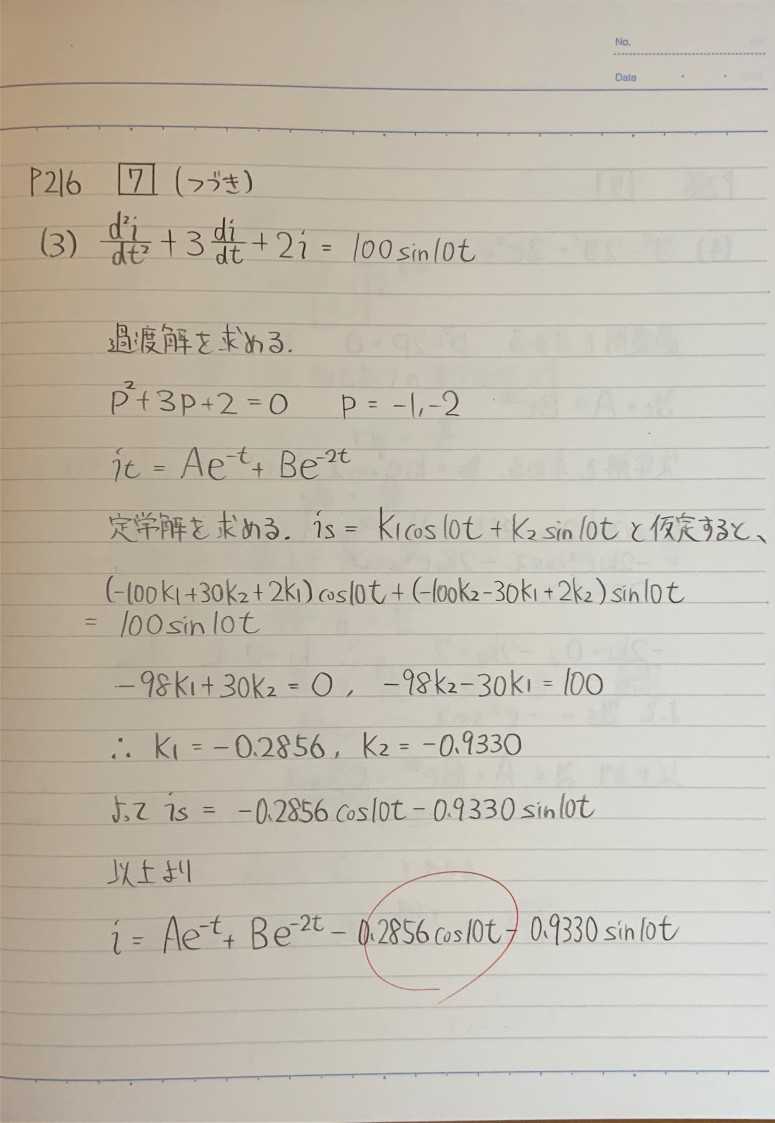 No.
Date
P216 7 (つづき)
(3) d²i/dt² + 3 di/dt + 2i = 100 sin10t
過渡解を求める.
P²+3P+2=0 P=-1,-2
it = Ae^-t + Be^-2t
定学解を求める. is = K1cos10t + K2 sin10t と仮定すると、
(-100K1+30K2+2K1)cos10t+(-100K2-30K1+2K2)sin10t
= 100sin10t
-98K1+30K2=0, -98K2-30K1=100
∴ K1=-0.2856, K2=-0.9330
よって is = -0.2856 cos10t - 0.9330 sin10t
以上より
i = Ae^-t + Be^-2t - 0.2856 cos10t - 0.9330 sin10t